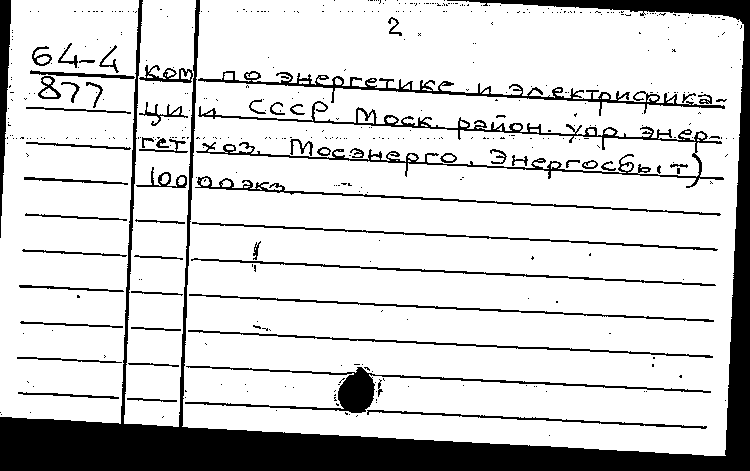 2
64-4
877
ком по энергетике и электрифика-
ции СССР. Моск. район. упр. энер-
гет хоз. Мосэнерго. Энергосбыт)
10000экз.